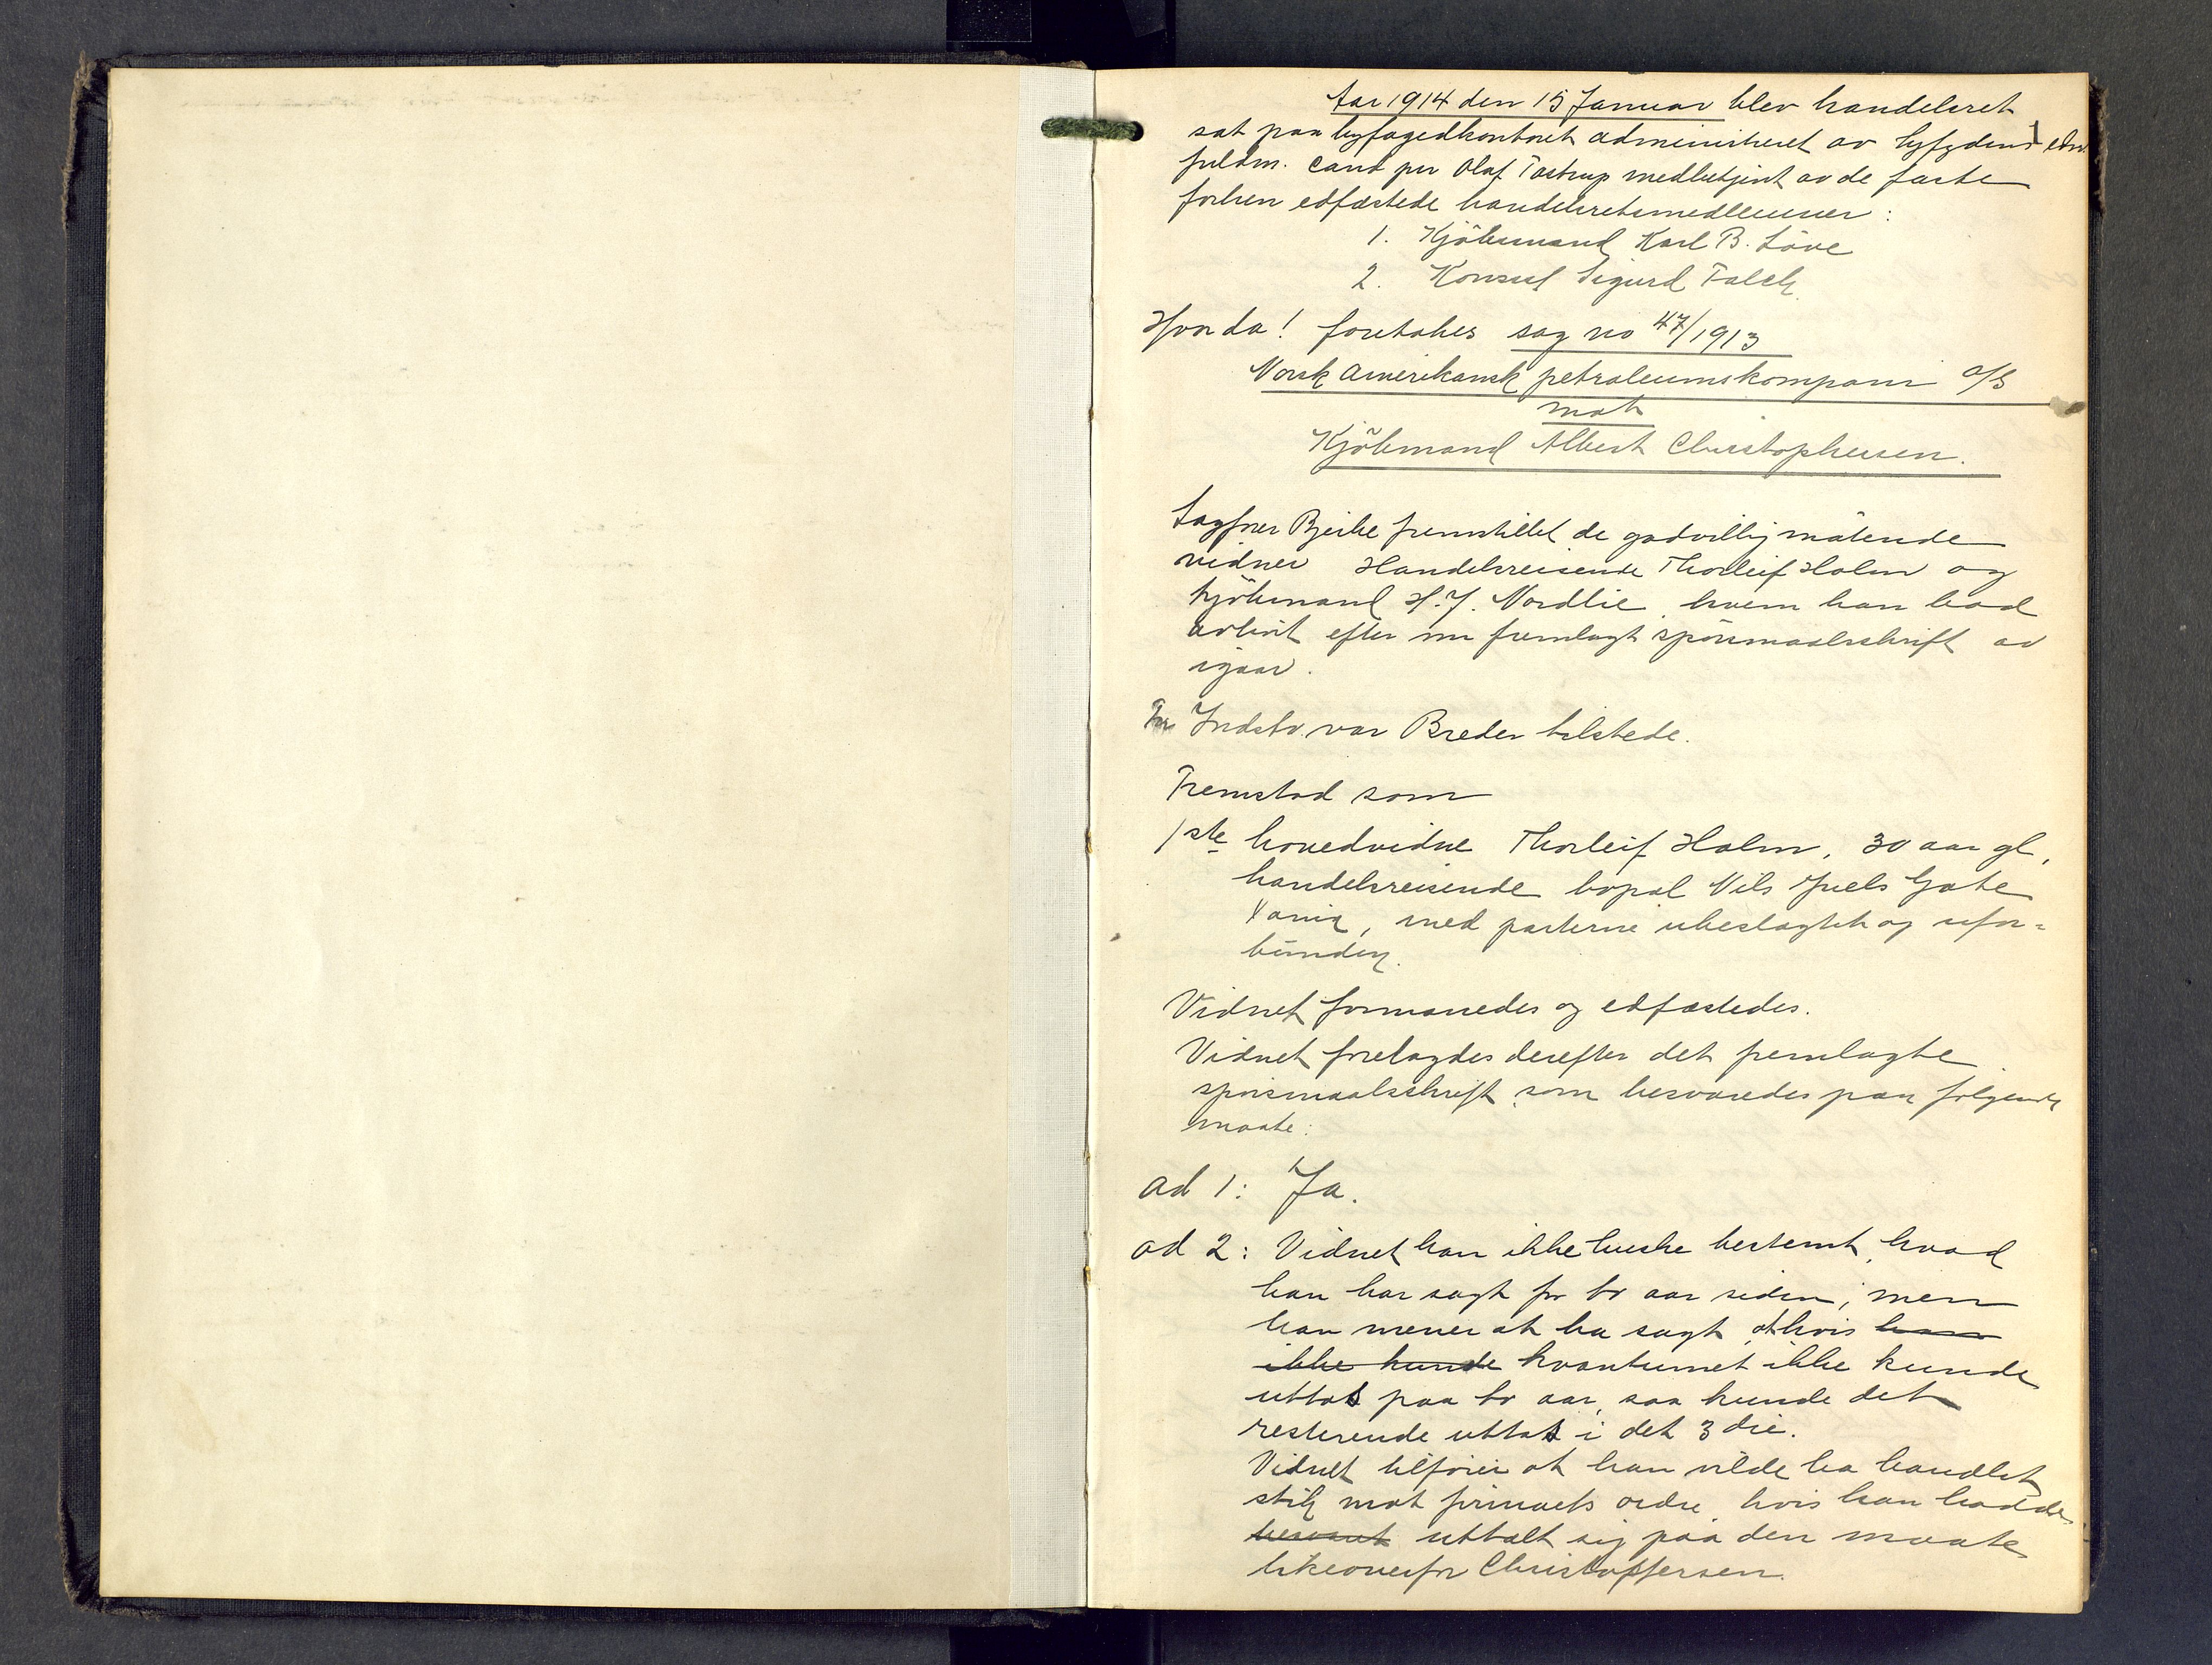 Aar 1914 den 15 Januar blev handelsret
sat paa byfogedkontoret administreret av byfgdens edsv.
fuldm. cand jur Olaf Tostrup medbetjent av de faste
forhen edfæstede handelsretsmedlemmer:
1. Kjöbmand Karl B. Löve
2. Konsul Sigurd Falck
Hvor da! foretokes sag no 47/1913
Norsk Amerikansk petroleumskompani A/S
mot
Kjöbmand Albert Christophersen.
Sagfører Bjerke fremstillet de godvillig mötende
vidner Handelsreisende Thorleif Holm og
kjöbmand H. J. Nordlie, hvem han bad
avhört efter nu fremlagt spörsmaalsskrift av
igaar.
For Indstv. var Breder tilstede.
Fremstod som
1ste hovedvidne Thorleif Holm, 30 aar gl,
handelsreisende bopæl Nils Juels Gate
Xania, med parterne ubeslægtet og ufor-
bunden.
Vidnet formanedes og edfæstedes.
Vidnet forelagdes derefter det fremlagte
spörsmaalsskrift som besvaredes paa følgende
maate:
ad 1: Ja.
ad 2: Vidnet kan ikke huske bestemt, hvad
han har sagt for to aar siden, men
han mener at ha sagt, at hvis han
ikke kunde kvantumet ikke kunde
uttas paa to aar, saa kunde det
resterende uttas i det 3die.
Vidnet tilføier at han vilde ha handlet
stik mot firmaets ordre, hvis han hadde
uttalt sig paa den maate
likeoverfor Christoffersen.